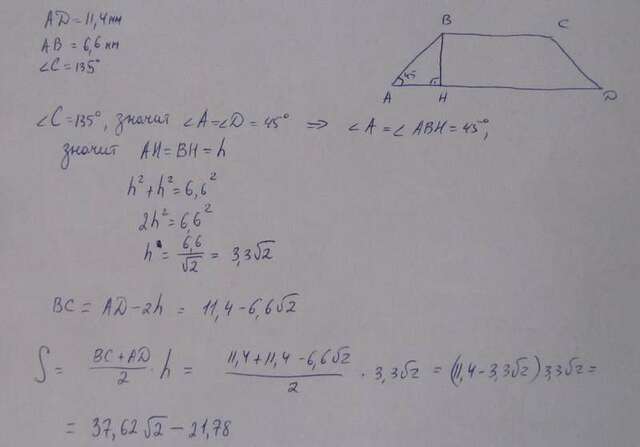 AD = 11,4 см
AB = 6,6 см
∠C = 135°
B C
45
A H D
∠C = 135°, значит ∠A = ∠D = 45° ⇒ ∠A = ∠ABH = 45°,
значит AH = BH = h
h² + h² = 6,6²
2h² = 6,6²
h = 6,6/√2 = 3,3√2
BC = AD – 2h = 11,4 – 6,6√2
S = (BC + AD)/2 · h = (11,4 + 11,4 – 6,6√2)/2 · 3,3√2 = (11,4 – 3,3√2) 3,3√2 =
= 37,62√2 – 21,78